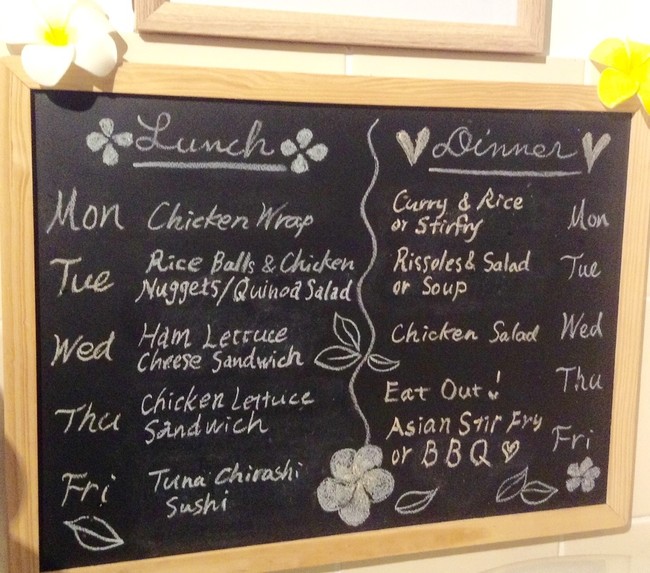 Lunch
Mon Chicken Wrap
Tue Rice Balls & Chicken
Nuggets/Quinoa Salad
Wed Ham Lettuce
Cheese Sandwich
Thu Chicken Lettuce
Sandwich
Fri Tuna Chirashi
Sushi
Dinner
Curry & Rice
or Stirfry Mon
Rissoles & Salad
or Soup Tue
Chicken Salad Wed
Eat Out! Thu
Asian Stir Fry
or BBQ Fri